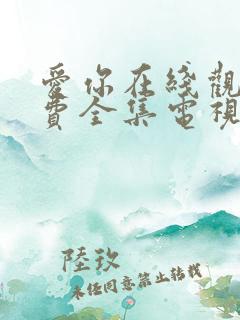 愛你在綫觀
費全集電視
陸玖
未經同意禁止轉載